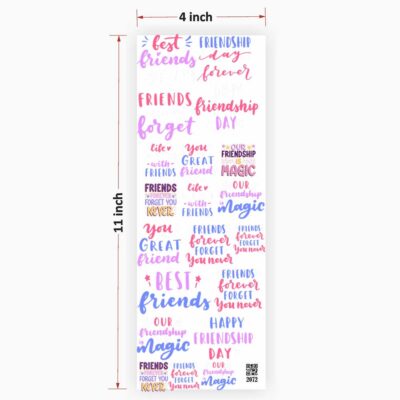 4 inch
11 inch
best
friends
FRIENDSHIP
day
forever
FRIENDS
forget
friendship
DAY
life
-with-
FRIENDS
You
GREAT
friend
OUR
FRIENDSHIP
IS
MAGIC
FRIENDS
FOREVER
FORGET YOU
NEVER
life
-with-
FRIENDS
OUR
friendship
is
magic
You
GREAT
friend
FRIENDS
forever
FORGET
You never
FRIENDS
forever
FORGET
You never
BEST
friends
FRIENDS
forever
FORGET
You never
OUR
friendship
is
magic
HAPPY
FRIENDSHIP
DAY
FRIENDS
FOREVER
FORGET YOU
NEVER
FRIENDS
forever
FORGET
You never
OUR
friendship
is
magic
2072